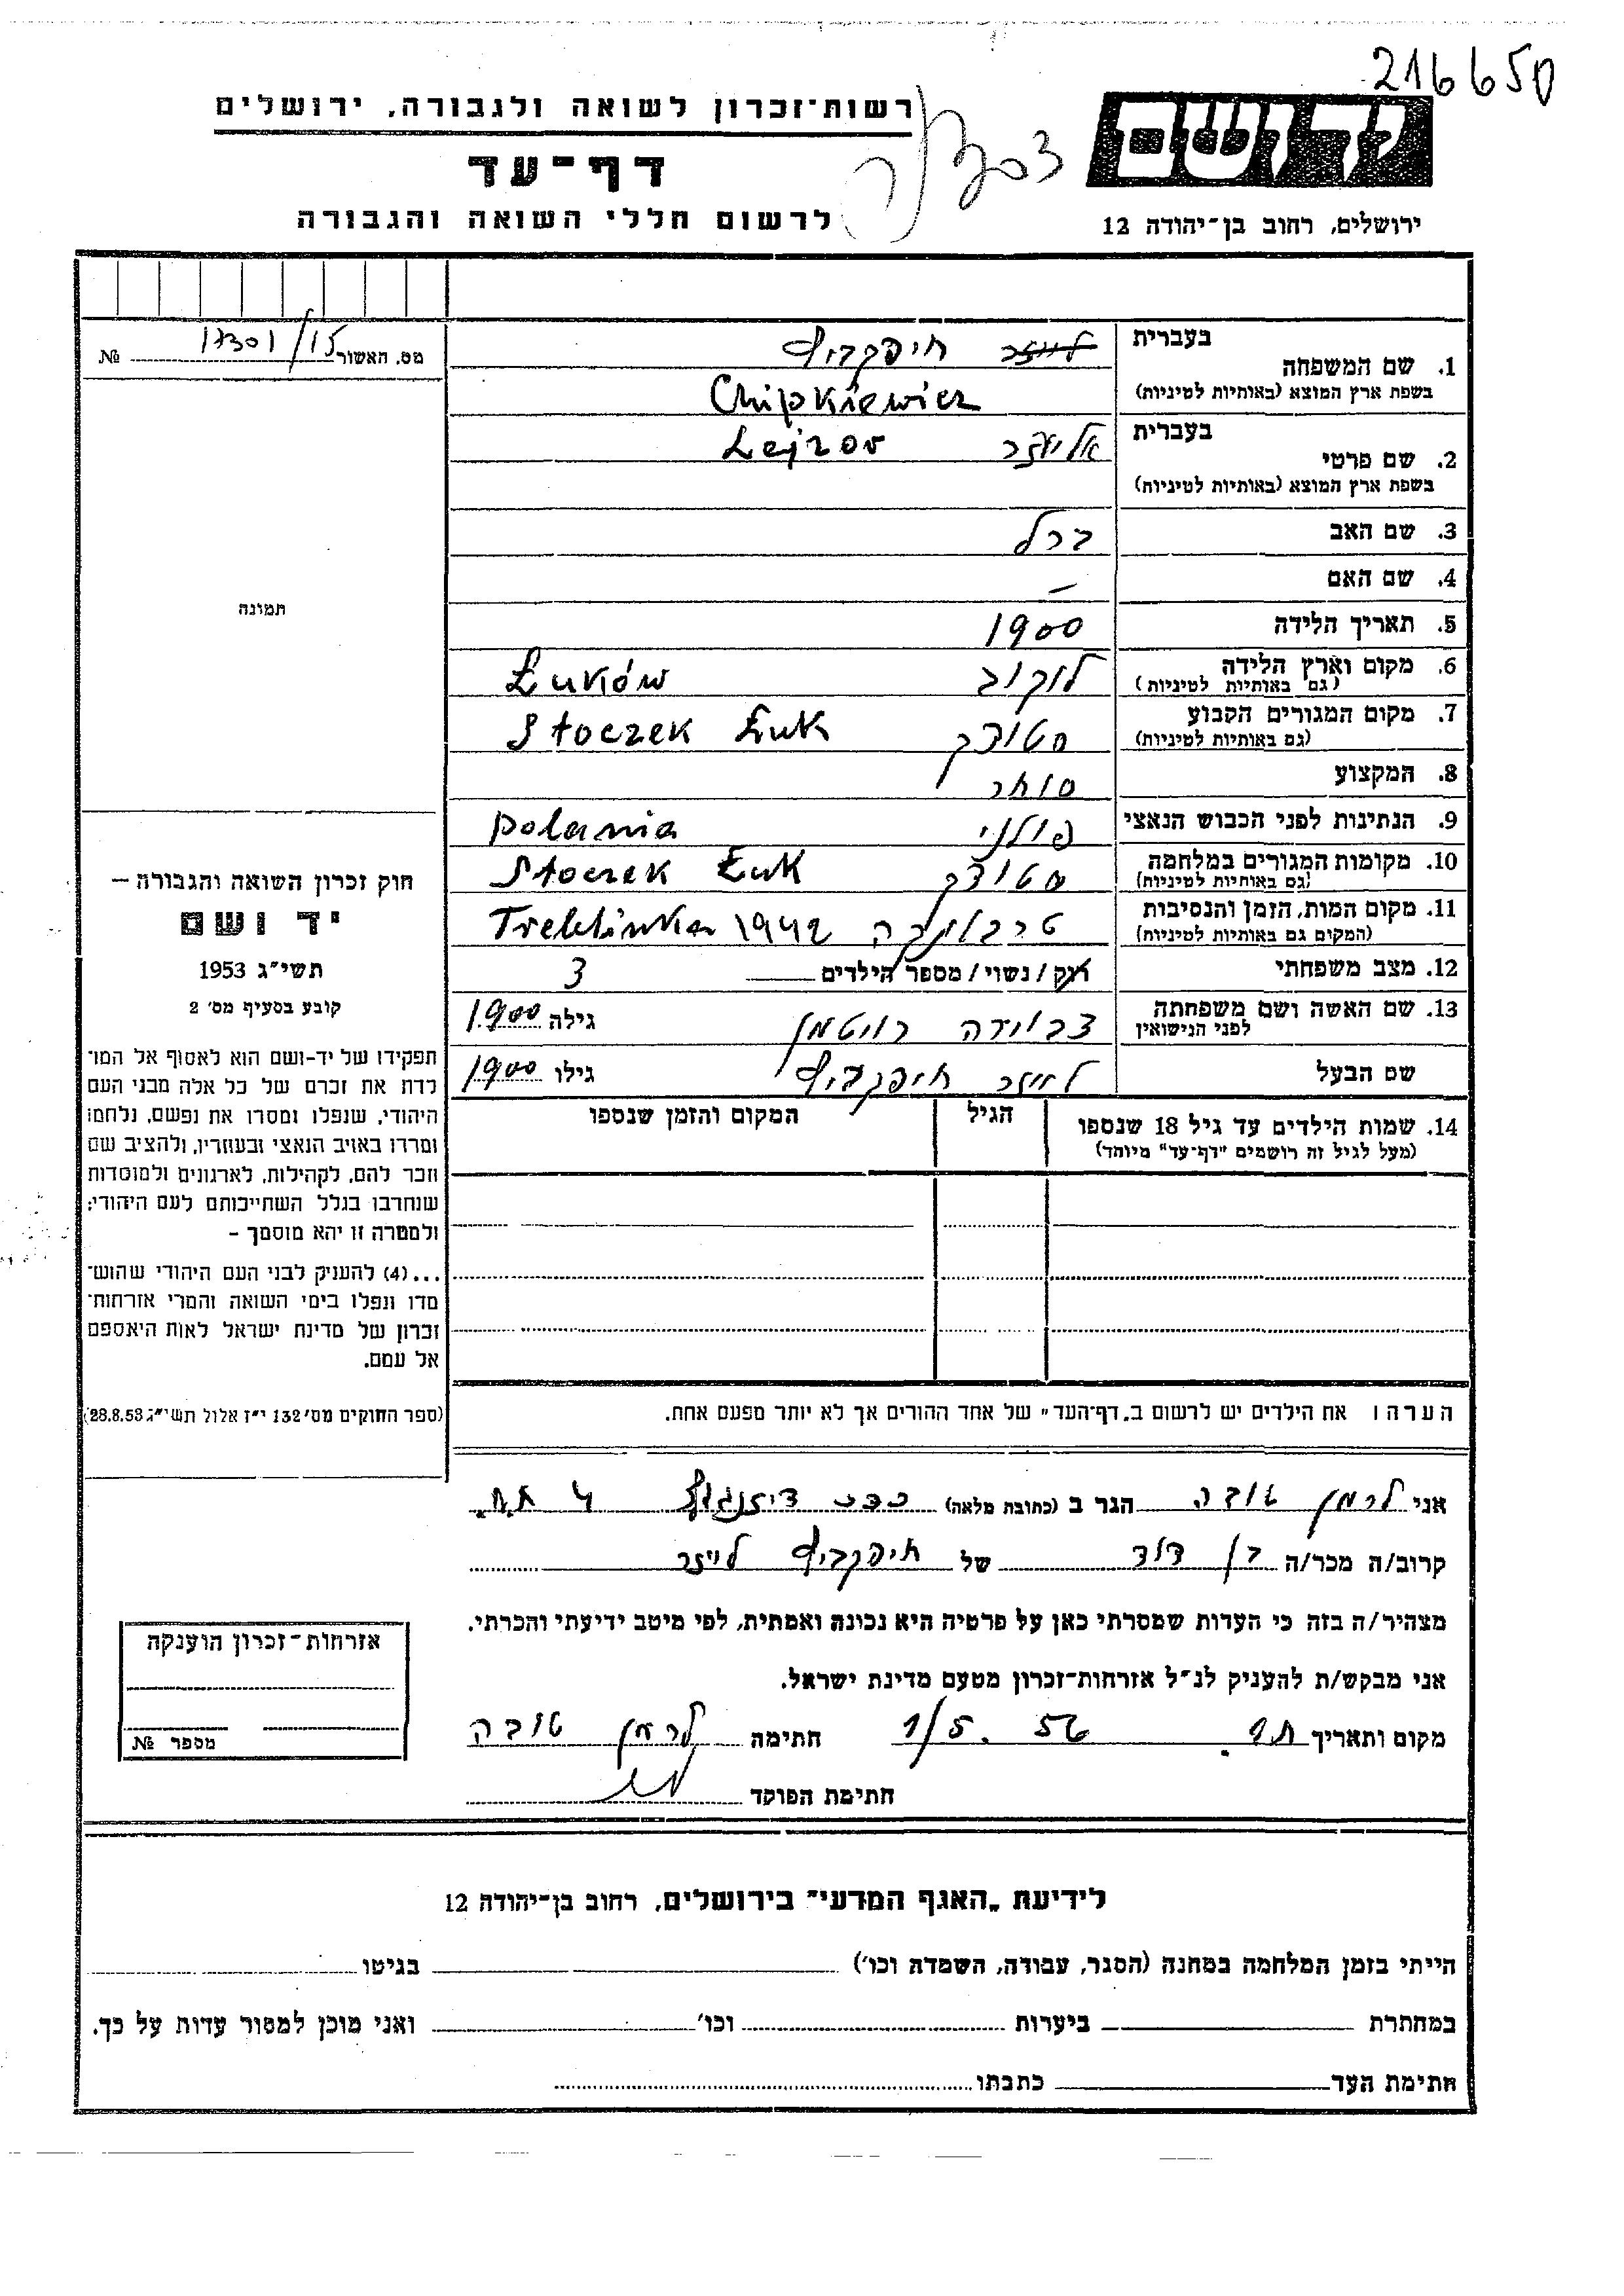 216650
רשות־זכרון לשואה ולגבורה, ירושלים
דף־עד
לרשום חללי השואה והגבורה
יד ושם
ירושלים, רחוב בן־יהודה 12
מס. האשור 17301/15 №
1. שם המשפחה
בעברית
ל̶י̶י̶ז̶ר̶ חיפקביץ
בשפת ארץ המוצא (באותיות לטיניות)
Chipkiewicz
2. שם פרטי
בעברית
אליעזר Lejzor
בשפת ארץ המוצא (באותיות לטיניות)
3. שם האב ברל
4. שם האם –
5. תאריך הלידה 1900
6. מקום וארץ הלידה לוקוב Łuków
(גם באותיות לטיניות)
7. מקום המגורים הקבוע סטוצק Stoczek Łuk
(גם באותיות לטיניות)
8. המקצוע סוחר
9. הנתינות לפני הכבוש הנאצי פולני polania
10. מקומות המגורים במלחמה סטוצק Stoczek Łuk
(גם באותיות לטיניות)
11. מקום המות, הזמן והנסיבות טרבלינקה 1942 Treblinka
(המקום גם באותיות לטיניות)
12. מצב משפחתי רוק / נשוי / מספר הילדים 3
13. שם האשה ושם משפחתה
לפני הנישואין
רויטמן גילה 1900
שם הבעל לייזר חיפקביץ גילו 1900
14. שמות הילדים עד גיל 18 שנספו הגיל המקום והזמן שנספו
(מעל לגיל זה רושמים "דף־עד" מיוחד)
הערה: את הילדים יש לרשום ב„דף־העד" של אחד ההורים אך לא יותר מפעם אחת.
תמונה
חוק זכרון השואה והגבורה –
יד ושם
תשי"ג 1953
קובע בסעיף מס' 2
תפקידו של יד-ושם הוא לאסוף אל המו־
לדת את זכרם של כל אלה מבני העם
היהודי, שנפלו ומסרו את נפשם, נלחמו
ומרדו באויב הנאצי ובעוזריו, ולהציב שם
וזכר להם, לקהילות, לארגונים ולמוסדות
שנחרבו בגלל השתייכותם לעם היהודי;
ולמטרה זו יהא מוסמך –
...(4) להעניק לבני העם היהודי שהוש־
מדו ונפלו בימי השואה והמרי אזרחות־
זכרון של מדינת ישראל לאות היאספם
אל עמם.
(ספר החוקים מס' 132 י"ז אלול תשי"ג 28.8.53)
אני לרמן טובה הגר ב (כתובת מלאה) ככר דיזנגוף 4 ת.א.
קרוב/ה מכר/ה בן דוד של חיפקביץ לייזר
מצהיר/ה בזה כי העדות שמסרתי כאן על פרטיה היא נכונה ואמתית, לפי מיטב ידיעתי והכרתי.
אני מבקש/ת להעניק לנ"ל אזרחות-זכרון מטעם מדינת ישראל.
מקום ותאריך 1/5. 56 חתימה לרמן טובה
חתימת הפוקד
אזרחות־זכרון הוענקה
מספר №
לידיעת „האגף המדעי" בירושלים, רחוב בן־יהודה 12
הייתי בזמן המלחמה במחנה (הסגר, עבודה, השמדה וכו') בגיטו
במחתרת ביערות וכו' ואני מוכן למסור עדות על כך.
חתימת העד כתבתו